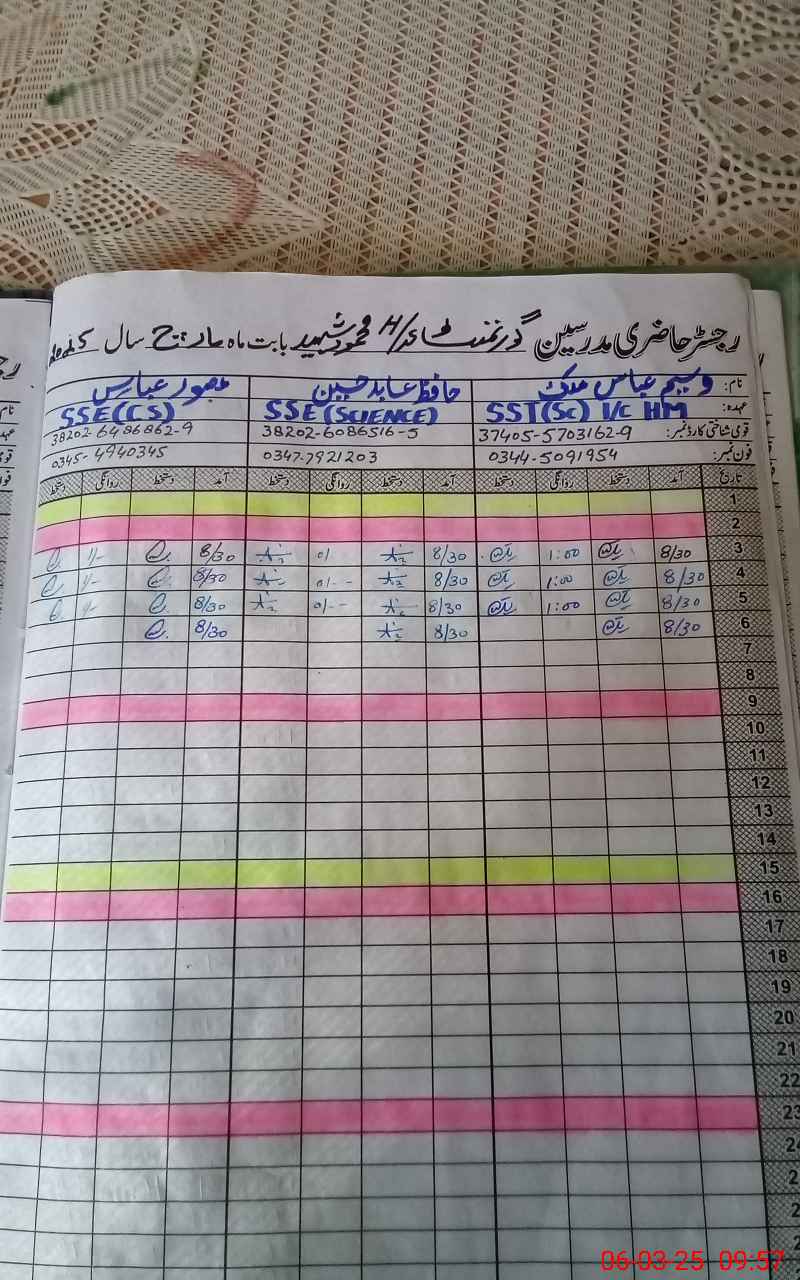 رجسٹر حاضری مدرسین گورنمنٹ H/S محمود شہید بابت ماہ مارچ سال
نام: وسیم عباس ملک حافظ عابد حسین منصور عباس
عہدہ: SST(SC) I/C HM SSE(SCIENCE) SSE(CS)
قومی شناختی کارڈ نمبر: 37405-5703162-9 38202-6086516-5 38202-6486862-9
فون نمبر: 0344-5091954 0347-7921203 0345-4940345
تاریخ آمد دستخط روانگی دستخط آمد دستخط روانگی دستخط آمد دستخط روانگی دستخط
1
2
3 8/30 1:00 8/30 8/30
4 8/30 1:00 8/30 8/30
5 8/30 1:00 8/30 8/30
6 8/30 8/30 8/30
7
8
9
10
11
12
13
14
15
16
17
18
19
20
21
22
23
06-03-25 09:57